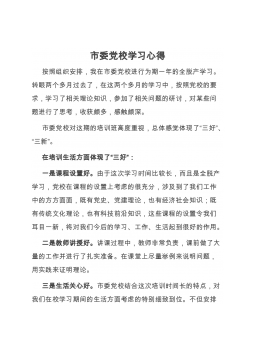 市委党校学习心得
按照组织安排，我在市委党校进行为期一年的全脱产学习。
转眼两个多月过去了，在这两个多月的学习中，按照党校的要
求，学习了相关理论知识，参加了相关问题的研讨，对某些问
题进行了思考，收获颇多，感触颇深。
市委党校对这期的培训班高度重视，总体感觉体现了“三好”、
“三新”。
在培训生活方面体现了“三好”：
一是课程设置好。由于这次学习时间比较长，而且是全脱产
学习，党校在课程的设置上考虑的很充分，涉及到了我们工作
中的方方面面，既有党史、党建理论，也有经济社会知识；既
有传统文化理论，也有科技前沿知识，这些课程的设置令我们
耳目一新，将对我们今后的学习、工作、生活起到很好的作用。
二是教师讲授好。讲课过程中，教师非常负责，课前做了大
量的工作并进行了扎实准备。在课堂上尽量举例来说明问题，
用实践来证明理论。
三是生活关心好。市委党校结合这次培训时间长的特点，对
我们在校学习期间的生活方面考虑的特别细致到位。不但安排